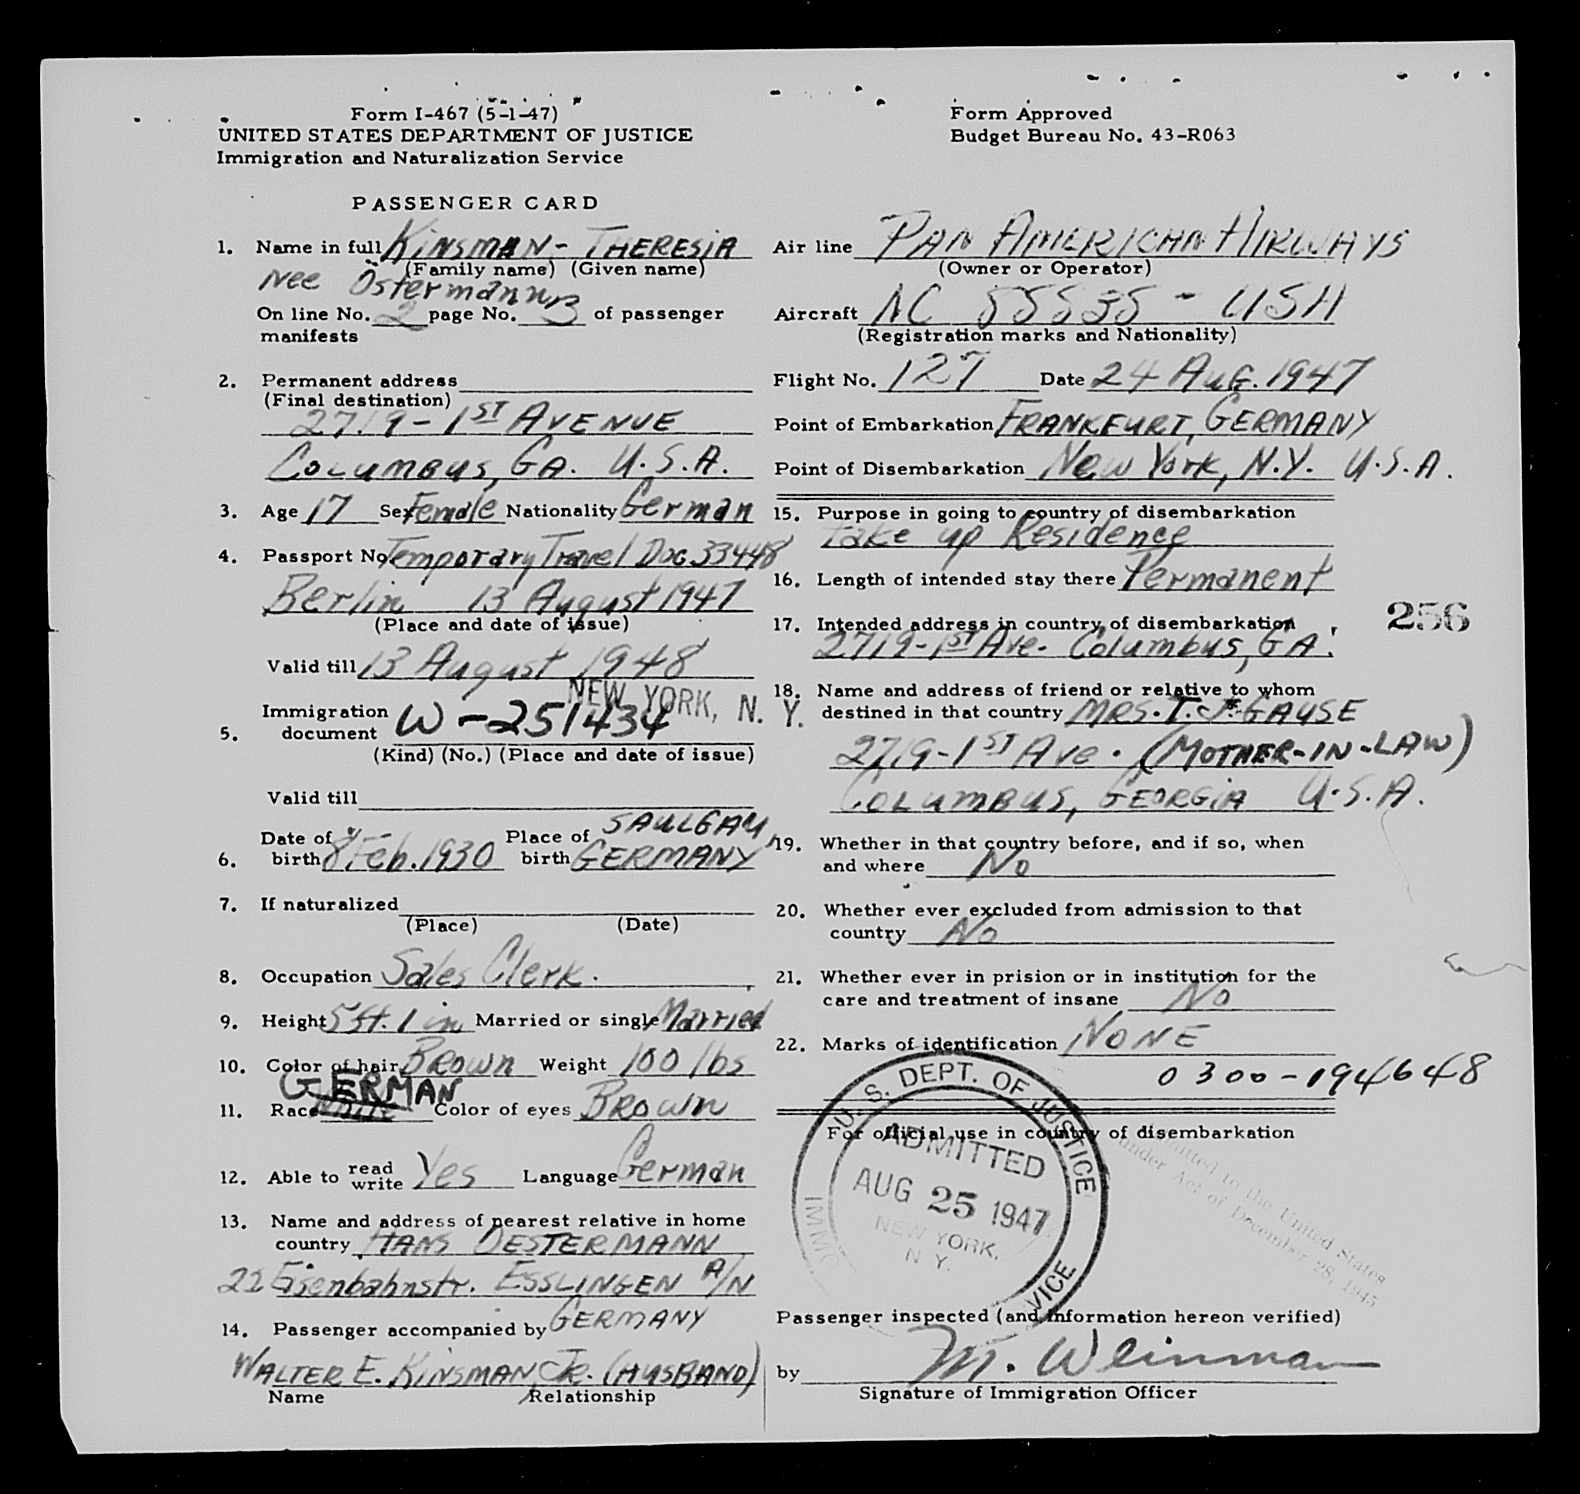 Form I-467 (5-1-47)
UNITED STATES DEPARTMENT OF JUSTICE
Immigration and Naturalization Service
Form Approved
Budget Bureau No. 43-R063
PASSENGER CARD
1. Name in full Kinsman - Theresia
(Family name) (Given name)
nee Östermann
On line No. 2 page No. 3 of passenger
manifests
2. Permanent address
(Final destination)
2719 - 1ST Avenue
Columbus, Ga. U.S.A.
3. Age 17 Sex Female Nationality German
4. Passport No Temporary Travel Doc. 33448
Berlin 13 August 1947
(Place and date of issue)
Valid till 13 August 1948
NEW YORK, N. Y.
5. Immigration
document W-251434
(Kind) (No.) (Place and date of issue)
Valid till
6. Date of birth 8 Feb. 1930 Place of birth SAULGAU, GERMANY
7. If naturalized
(Place) (Date)
8. Occupation Sales Clerk.
9. Height 5 ft. 1 in Married or single Married
10. Color of hair Brown Weight 100 lbs
GERMAN
11. Race White Color of eyes Brown
12. Able to read write Yes Language German
13. Name and address of nearest relative in home
country HANS OESTERMANN
22 Eisenbahnstr. ESSLINGEN A/N
GERMANY
14. Passenger accompanied by
WALTER E. KINSMAN, JR. (HUSBAND)
Name Relationship
Air line PAN AMERICAN AIRWAYS
(Owner or Operator)
Aircraft NC 88838 - USA
(Registration marks and Nationality)
Flight No. 127 Date 24 Aug. 1947
Point of Embarkation FRANKFURT, GERMANY
Point of Disembarkation New York, N.Y. U.S.A.
15. Purpose in going to country of disembarkation
take up Residence
16. Length of intended stay there Permanent
256
17. Intended address in country of disembarkation
2719-1ST Ave. Columbus, GA.
18. Name and address of friend or relative to whom
destined in that country MRS. T. J. GAUSE
2719-1ST Ave. (MOTHER-IN-LAW)
COLUMBUS, GEORGIA U.S.A.
19. Whether in that country before, and if so, when
and where No
20. Whether ever excluded from admission to that
country No
21. Whether ever in prision or in institution for the
care and treatment of insane No
22. Marks of identification NONE
0300-194648
For official use in country of disembarkation
U. S. DEPT. OF JUSTICE
ADMITTED
AUG 25 1947
NEW YORK,
N. Y.
IMM. VICE
mitted to the United States
under Act of December 28, 1945
Passenger inspected (and information hereon verified)
by M. Weinman
Signature of Immigration Officer